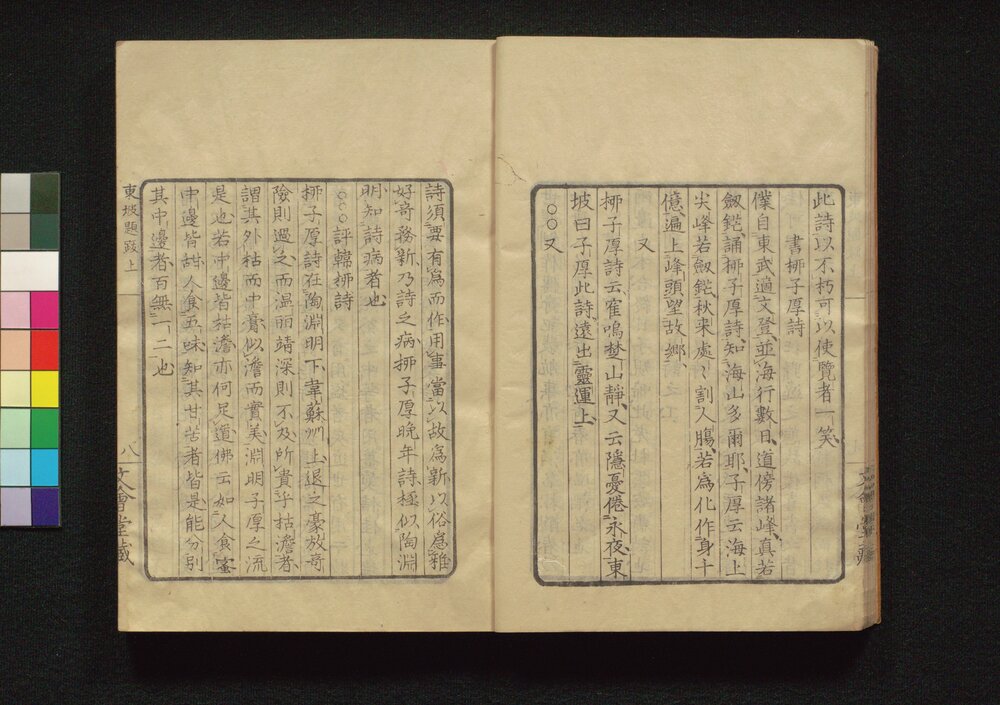 此詩以不朽可以使覽者一笑
書柳子厚詩
僕自東武適文登並海行數日道傍諸峰真若
劔鋩誦柳子厚詩知海山多爾耶子厚云海上
尖峰若劔鋩秋来處々割人膓若為化作身十
億遍上峰頭望故鄉
又
柳子厚詩云崔鳴楚山靜又云隱憂倦永夜東
坡曰子厚此詩遠出靈運上
〇〇又
詩須要有為而作用事當以故為新以俗為雅
好奇務新乃詩之病柳子厚晚年詩極似陶淵
明知詩病者也
〇〇評韓柳詩
柳子厚詩在陶淵明下韋蘇州上退之豪放奇
險則過之而温丽靖深則不及所貴乎枯澹者
謂其外枯而中膏似澹而實美淵明子厚之流
是也若中邊皆枯澹亦何足道佛云如人食蜜
中邊皆甜人食五味知其甘苦者皆是能分别
其中邊者百無一二也
東坡題跋上
八
文會堂藏